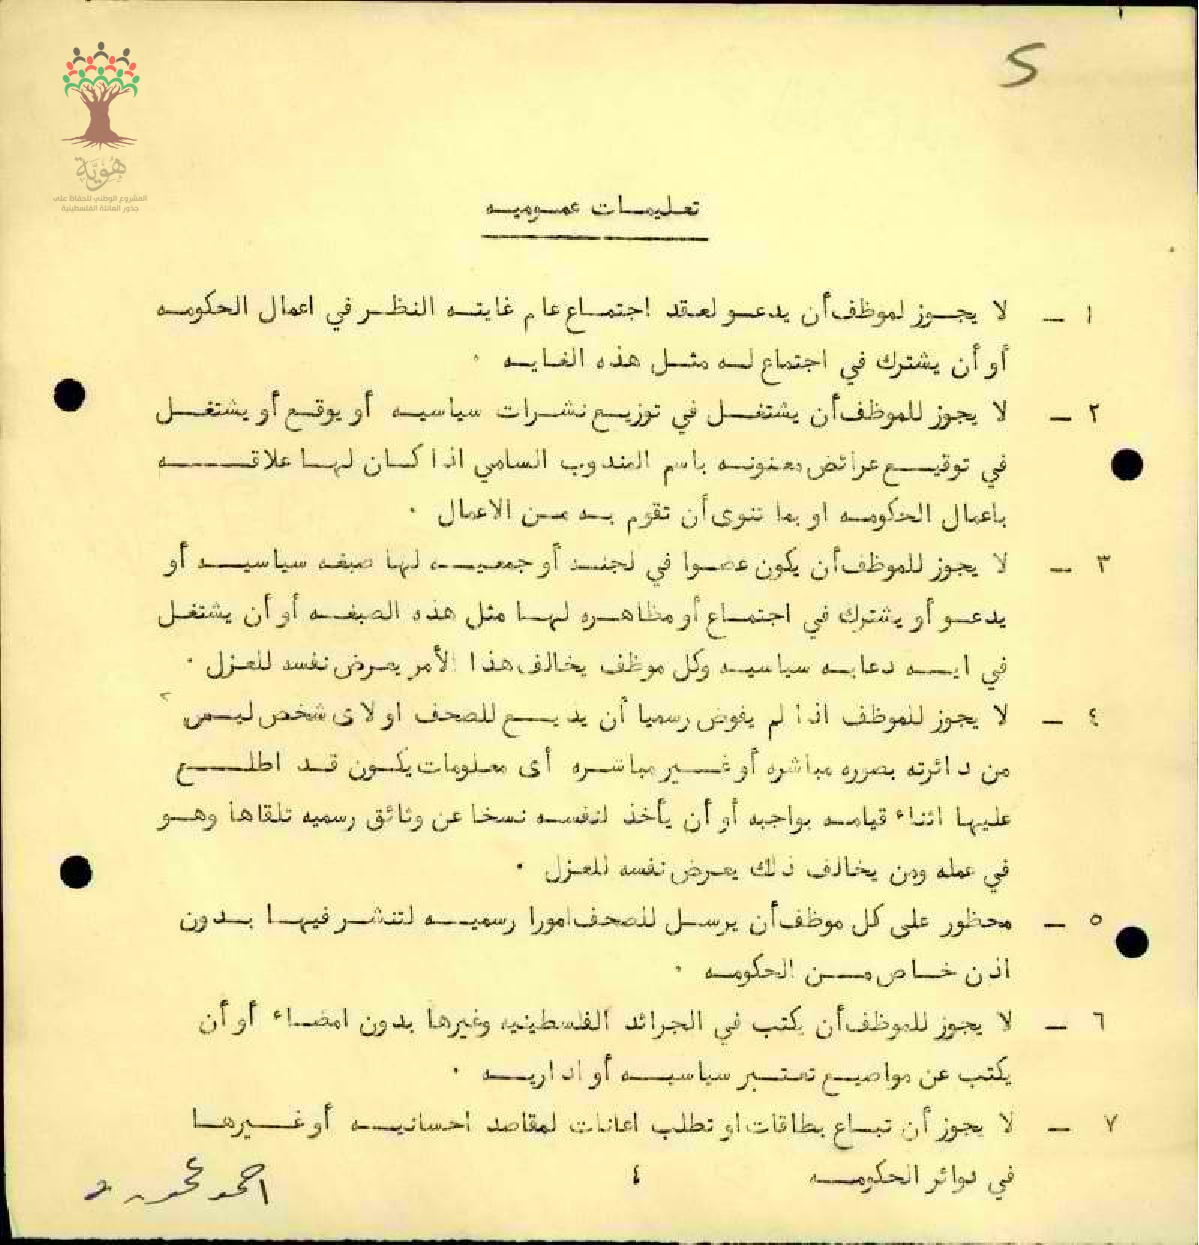 5
هُوِيَّة
المشروع الوطني للحفاظ على
جذور العائلة الفلسطينية
تعليمات عموميه
١ — لا يجوز لموظف أن يدعو لعقد اجتماع عام غايته النظر في اعمال الحكومه
أو أن يشترك في اجتماع له مثل هذه الغايه .
٢ — لا يجوز للموظف أن يشتغل في توزيع نشرات سياسيه أو يوقع أو يشتغل
في توقيع عرائض معنونه باسم المندوب السامي اذا كان لها علاقه
باعمال الحكومه او بما تنوى أن تقوم به من الاعمال .
٣ — لا يجوز للموظف أن يكون عضوا في لجنه أو جمعيه لها صبغه سياسيه أو
يدعو أو يشترك في اجتماع أو مظاهره لها مثل هذه الصبغه أو أن يشتغل
في ايه دعايه سياسيه وكل موظف يخالف هذا الأمر يعرض نفسه للعزل .
٤ — لا يجوز للموظف اذا لم يفوض رسميا أن يذيع للصحف او لاى شخص ليس
من دائرته بصوره مباشره أو غير مباشره أى معلومات يكون قد اطلع
عليها اثناء قيامه بواجبه أو أن يأخذ لنفسه نسخا عن وثائق رسميه تلقاها وهو
في عمله ومن يخالف ذلك يعرض نفسه للعزل .
٥ — محظور على كل موظف أن يرسل للصحف امورا رسميه لتنشر فيها بدون
اذن خاص من الحكومه .
٦ — لا يجوز للموظف أن يكتب في الجرائد الفلسطينيه وغيرها بدون امضاء أو أن
يكتب عن مواضيع تعتبر سياسيه أو اداريه .
٧ — لا يجوز أن تباع بطاقات او تطلب اعانات لمقاصد احسانيه أو غيرها
في دوائر الحكومه
٤
احمد